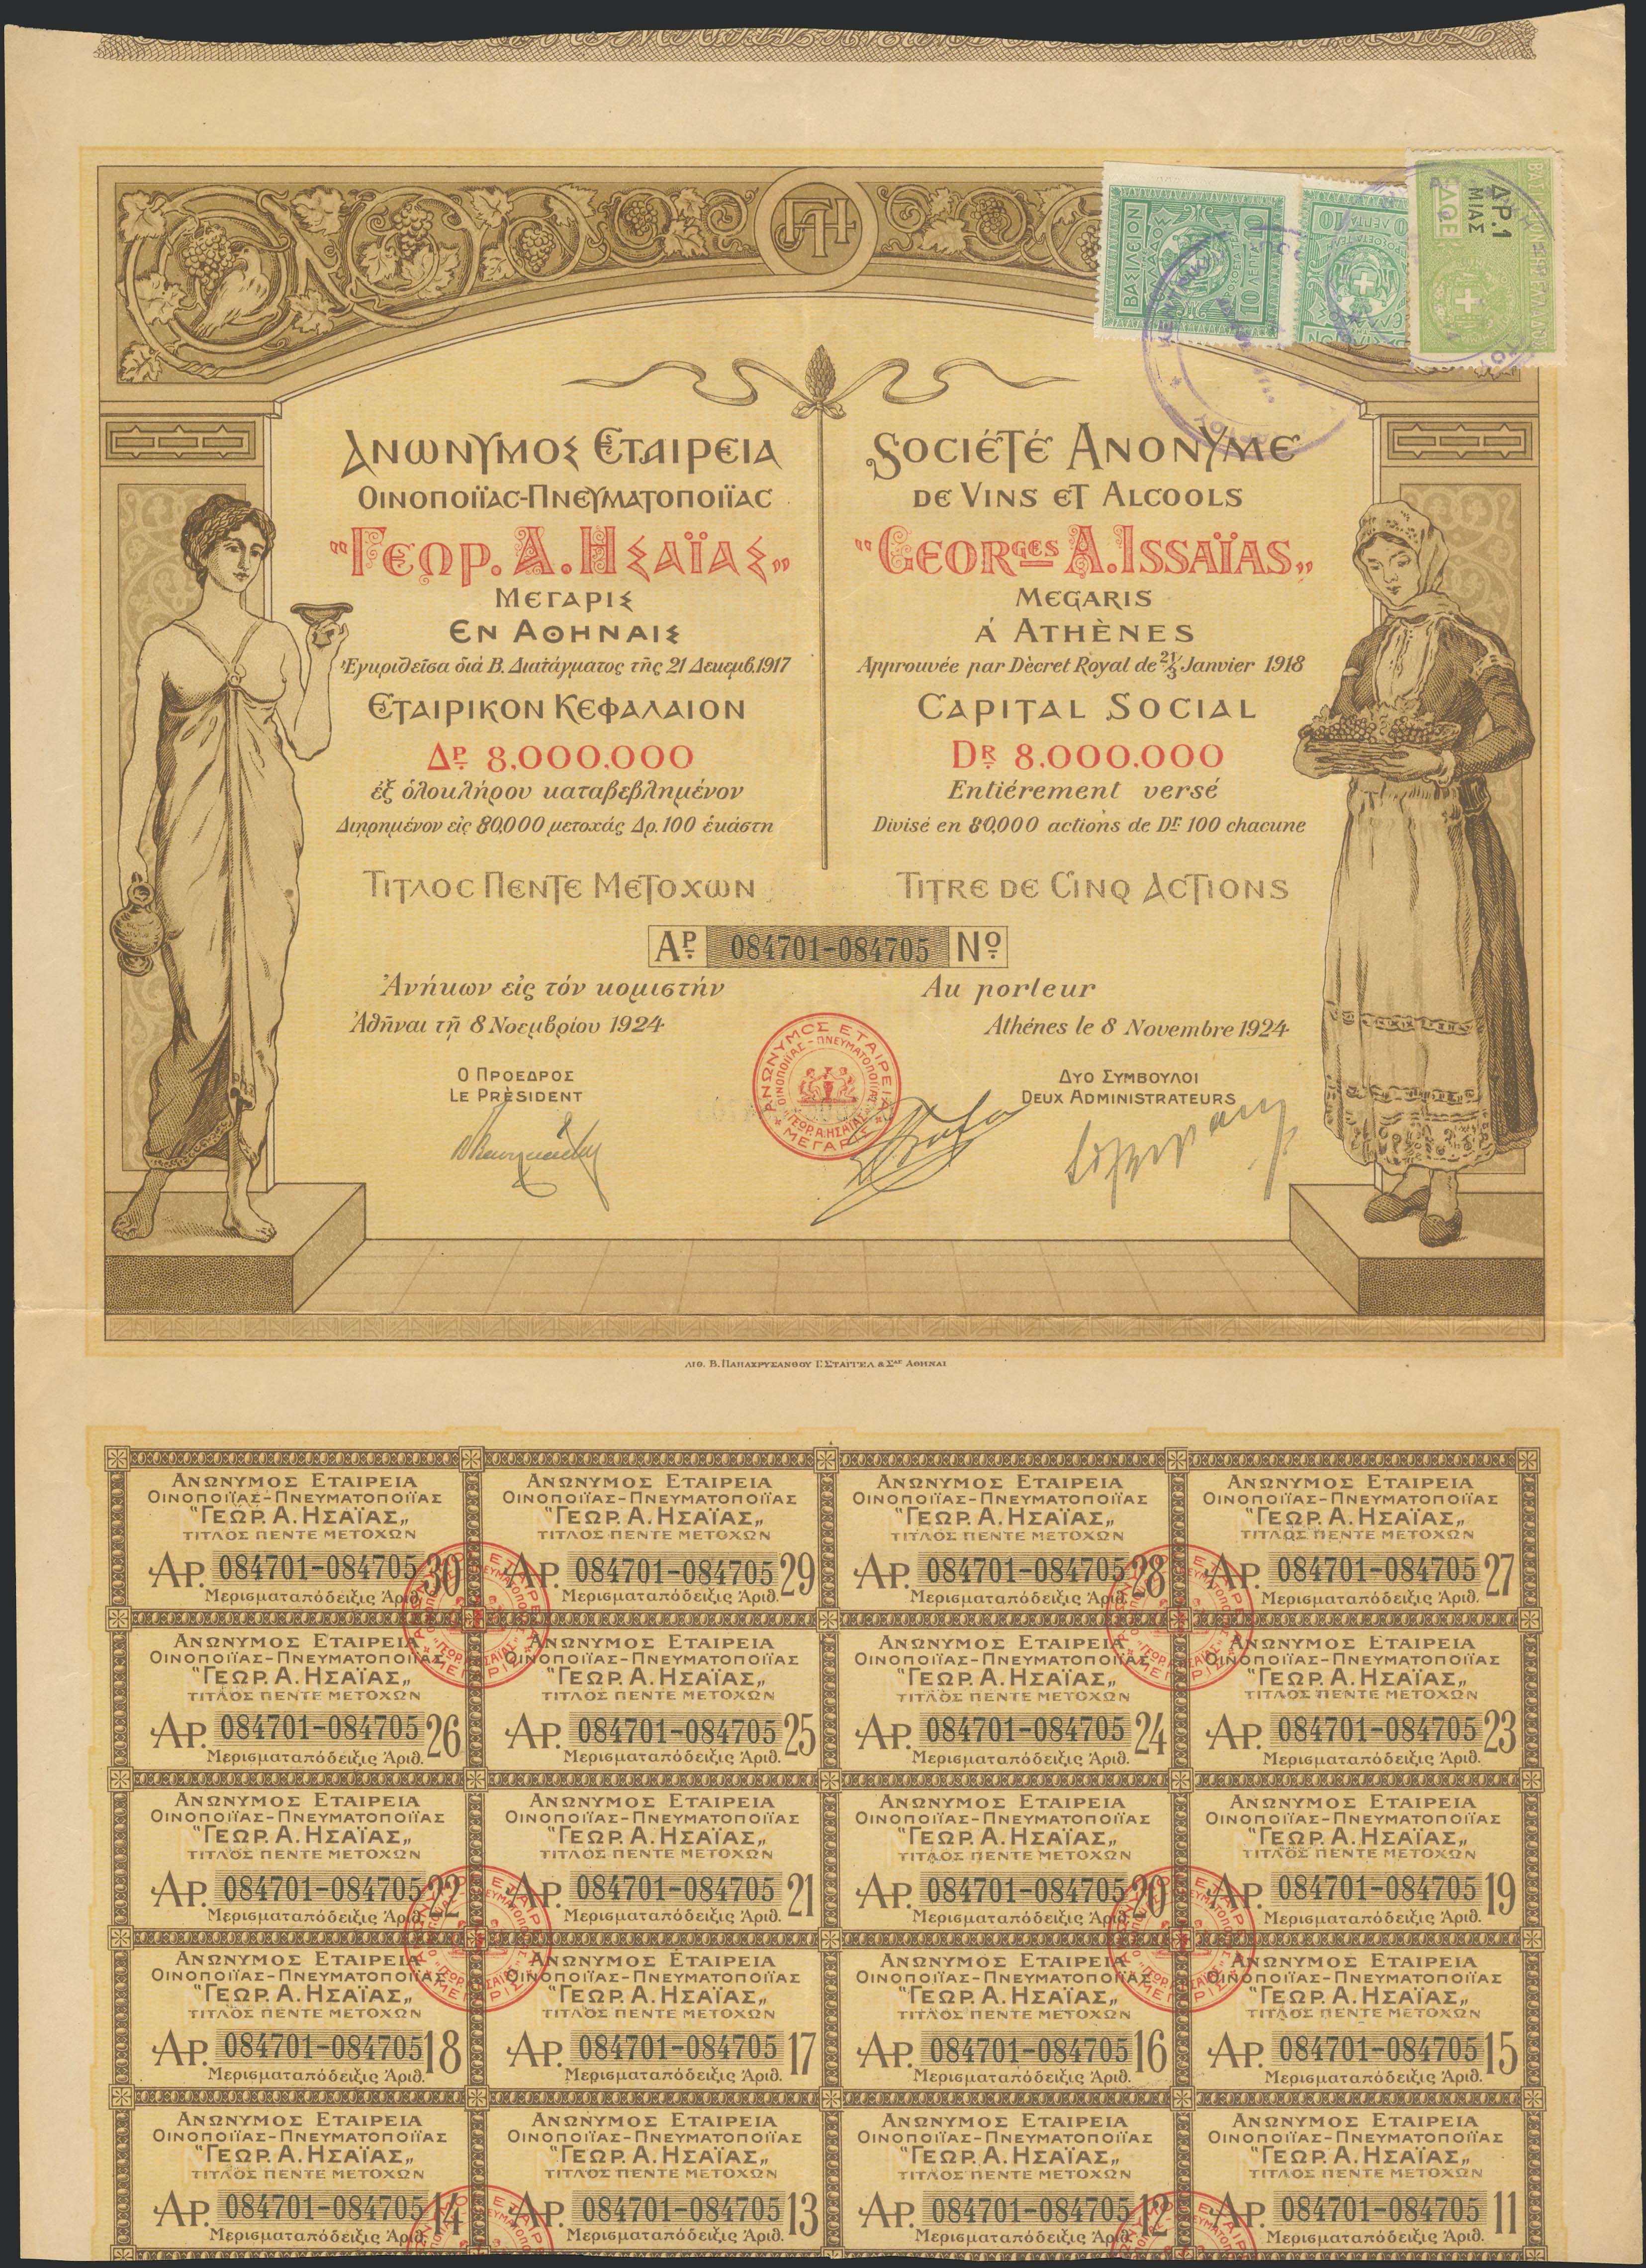 ΒΑΣΙΛΕΙΟΝ
ΕΛΛΑΔΟΣ
10 ΛΕΠΤΑ 10
10 ΛΕΠΤΑ
ΔΡ. 1
ΜΙΑΣ
ΑΝΩΝΥΜΟΣ ΕΤΑΙΡΕΙΑ
ΟΙΝΟΠΟΙΪΑΣ-ΠΝΕΥΜΑΤΟΠΟΙΪΑΣ
"ΓΕΩΡ. Α. ΗΣΑΪΑΣ„
ΜΕΓΑΡΙΣ
ΕΝ ΑΘΗΝΑΙΣ
Ἐγκριθεῖσα διά Β. Διατάγματος τῆς 21 Δεκεμβ. 1917
ΕΤΑΙΡΙΚΟΝ ΚΕΦΑΛΑΙΟΝ
ΔΡ. 8.000.000
ἐξ ὁλοκλήρου καταβεβλημένον
Διηρημένον είς 80,000 μετοχάς Δρ. 100 ἑκάστη
ΤΙΤΛΟΣ ΠΕΝΤΕ ΜΕΤΟΧΩΝ
SOCIÉTÉ ANONYME
DE VINS ET ALCOOLS
"GEORGES A. ISSAÏAS„
MEGARIS
Á ATHÈNES
Approuvée par Dècret Royal de 21/3 Janvier 1918
CAPITAL SOCIAL
DR. 8.000.000
Entiérement versé
Divisé en 80,000 actions de DR. 100 chacune
TITRE DE CINQ ACTIONS
ΑΡ. 084701-084705 Nο
Ἀνήκων είς τόν κομιστήν
Ἀθῆναι τῇ 8 Νοεμβρίου 1924
Au porteur
Athénes le 8 Novembre 1924
Ο ΠΡΟΕΔΡΟΣ
LE PRÈSIDENT
ΑΝΩΝΥΜΟΣ ΕΤΑΙΡΕΙΑ
ΟΙΝΟΠΟΙΪΑΣ-ΠΝΕΥΜΑΤΟΠΟΙΪΑΣ
"ΓΕΩΡ. Α. ΗΣΑΪΑΣ„
ΜΕΓΑΡΙΣ
ΔΥΟ ΣΥΜΒΟΥΛΟΙ
DEUX ADMINISTRATEURS
ΛΙΘ. Β. ΠΑΠΑΧΡΥΣΑΝΘΟΥ Γ. ΣΤΑΓΓΕΛ & ΣΑΣ ΑΘΗΝΑΙ
ΑΝΩΝΥΜΟΣ ΕΤΑΙΡΕΙΑ
ΟΙΝΟΠΟΙΪΑΣ-ΠΝΕΥΜΑΤΟΠΟΙΪΑΣ
"ΓΕΩΡ. Α. ΗΣΑΪΑΣ„
ΤΙΤΛΟΣ ΠΕΝΤΕ ΜΕΤΟΧΩΝ
ΑΡ. 084701-084705 30
Μερισματαπόδειξις Ἀριθ.
ΑΝΩΝΥΜΟΣ ΕΤΑΙΡΕΙΑ
ΟΙΝΟΠΟΙΪΑΣ-ΠΝΕΥΜΑΤΟΠΟΙΪΑΣ
"ΓΕΩΡ. Α. ΗΣΑΪΑΣ„
ΤΙΤΛΟΣ ΠΕΝΤΕ ΜΕΤΟΧΩΝ
ΑΡ. 084701-084705 29
Μερισματαπόδειξις Ἀριθ.
ΑΝΩΝΥΜΟΣ ΕΤΑΙΡΕΙΑ
ΟΙΝΟΠΟΙΪΑΣ-ΠΝΕΥΜΑΤΟΠΟΙΪΑΣ
"ΓΕΩΡ. Α. ΗΣΑΪΑΣ„
ΤΙΤΛΟΣ ΠΕΝΤΕ ΜΕΤΟΧΩΝ
ΑΡ. 084701-084705 28
Μερισματαπόδειξις Ἀριθ.
ΑΝΩΝΥΜΟΣ ΕΤΑΙΡΕΙΑ
ΟΙΝΟΠΟΙΪΑΣ-ΠΝΕΥΜΑΤΟΠΟΙΪΑΣ
"ΓΕΩΡ. Α. ΗΣΑΪΑΣ„
ΤΙΤΛΟΣ ΠΕΝΤΕ ΜΕΤΟΧΩΝ
ΑΡ. 084701-084705 27
Μερισματαπόδειξις Ἀριθ.
ΑΝΩΝΥΜΟΣ ΕΤΑΙΡΕΙΑ
ΟΙΝΟΠΟΙΪΑΣ-ΠΝΕΥΜΑΤΟΠΟΙΪΑΣ
"ΓΕΩΡ. Α. ΗΣΑΪΑΣ„
ΤΙΤΛΟΣ ΠΕΝΤΕ ΜΕΤΟΧΩΝ
ΑΡ. 084701-084705 26
Μερισματαπόδειξις Ἀριθ.
ΑΝΩΝΥΜΟΣ ΕΤΑΙΡΕΙΑ
ΟΙΝΟΠΟΙΪΑΣ-ΠΝΕΥΜΑΤΟΠΟΙΪΑΣ
"ΓΕΩΡ. Α. ΗΣΑΪΑΣ„
ΤΙΤΛΟΣ ΠΕΝΤΕ ΜΕΤΟΧΩΝ
ΑΡ. 084701-084705 25
Μερισματαπόδειξις Ἀριθ.
ΑΝΩΝΥΜΟΣ ΕΤΑΙΡΕΙΑ
ΟΙΝΟΠΟΙΪΑΣ-ΠΝΕΥΜΑΤΟΠΟΙΪΑΣ
"ΓΕΩΡ. Α. ΗΣΑΪΑΣ„
ΤΙΤΛΟΣ ΠΕΝΤΕ ΜΕΤΟΧΩΝ
ΑΡ. 084701-084705 24
Μερισματαπόδειξις Ἀριθ.
ΑΝΩΝΥΜΟΣ ΕΤΑΙΡΕΙΑ
ΟΙΝΟΠΟΙΪΑΣ-ΠΝΕΥΜΑΤΟΠΟΙΪΑΣ
"ΓΕΩΡ. Α. ΗΣΑΪΑΣ„
ΤΙΤΛΟΣ ΠΕΝΤΕ ΜΕΤΟΧΩΝ
ΑΡ. 084701-084705 23
Μερισματαπόδειξις Ἀριθ.
ΑΝΩΝΥΜΟΣ ΕΤΑΙΡΕΙΑ
ΟΙΝΟΠΟΙΪΑΣ-ΠΝΕΥΜΑΤΟΠΟΙΪΑΣ
"ΓΕΩΡ. Α. ΗΣΑΪΑΣ„
ΤΙΤΛΟΣ ΠΕΝΤΕ ΜΕΤΟΧΩΝ
ΑΡ. 084701-084705 22
Μερισματαπόδειξις Ἀριθ.
ΑΝΩΝΥΜΟΣ ΕΤΑΙΡΕΙΑ
ΟΙΝΟΠΟΙΪΑΣ-ΠΝΕΥΜΑΤΟΠΟΙΪΑΣ
"ΓΕΩΡ. Α. ΗΣΑΪΑΣ„
ΤΙΤΛΟΣ ΠΕΝΤΕ ΜΕΤΟΧΩΝ
ΑΡ. 084701-084705 21
Μερισματαπόδειξις Ἀριθ.
ΑΝΩΝΥΜΟΣ ΕΤΑΙΡΕΙΑ
ΟΙΝΟΠΟΙΪΑΣ-ΠΝΕΥΜΑΤΟΠΟΙΪΑΣ
"ΓΕΩΡ. Α. ΗΣΑΪΑΣ„
ΤΙΤΛΟΣ ΠΕΝΤΕ ΜΕΤΟΧΩΝ
ΑΡ. 084701-084705 20
Μερισματαπόδειξις Ἀριθ.
ΑΝΩΝΥΜΟΣ ΕΤΑΙΡΕΙΑ
ΟΙΝΟΠΟΙΪΑΣ-ΠΝΕΥΜΑΤΟΠΟΙΪΑΣ
"ΓΕΩΡ. Α. ΗΣΑΪΑΣ„
ΤΙΤΛΟΣ ΠΕΝΤΕ ΜΕΤΟΧΩΝ
ΑΡ. 084701-084705 19
Μερισματαπόδειξις Ἀριθ.
ΑΝΩΝΥΜΟΣ ΕΤΑΙΡΕΙΑ
ΟΙΝΟΠΟΙΪΑΣ-ΠΝΕΥΜΑΤΟΠΟΙΪΑΣ
"ΓΕΩΡ. Α. ΗΣΑΪΑΣ„
ΤΙΤΛΟΣ ΠΕΝΤΕ ΜΕΤΟΧΩΝ
ΑΡ. 084701-084705 18
Μερισματαπόδειξις Ἀριθ.
ΑΝΩΝΥΜΟΣ ΕΤΑΙΡΕΙΑ
ΟΙΝΟΠΟΙΪΑΣ-ΠΝΕΥΜΑΤΟΠΟΙΪΑΣ
"ΓΕΩΡ. Α. ΗΣΑΪΑΣ„
ΤΙΤΛΟΣ ΠΕΝΤΕ ΜΕΤΟΧΩΝ
ΑΡ. 084701-084705 17
Μερισματαπόδειξις Ἀριθ.
ΑΝΩΝΥΜΟΣ ΕΤΑΙΡΕΙΑ
ΟΙΝΟΠΟΙΪΑΣ-ΠΝΕΥΜΑΤΟΠΟΙΪΑΣ
"ΓΕΩΡ. Α. ΗΣΑΪΑΣ„
ΤΙΤΛΟΣ ΠΕΝΤΕ ΜΕΤΟΧΩΝ
ΑΡ. 084701-084705 16
Μερισματαπόδειξις Ἀριθ.
ΑΝΩΝΥΜΟΣ ΕΤΑΙΡΕΙΑ
ΟΙΝΟΠΟΙΪΑΣ-ΠΝΕΥΜΑΤΟΠΟΙΪΑΣ
"ΓΕΩΡ. Α. ΗΣΑΪΑΣ„
ΤΙΤΛΟΣ ΠΕΝΤΕ ΜΕΤΟΧΩΝ
ΑΡ. 084701-084705 15
Μερισματαπόδειξις Ἀριθ.
ΑΝΩΝΥΜΟΣ ΕΤΑΙΡΕΙΑ
ΟΙΝΟΠΟΙΪΑΣ-ΠΝΕΥΜΑΤΟΠΟΙΪΑΣ
"ΓΕΩΡ. Α. ΗΣΑΪΑΣ„
ΤΙΤΛΟΣ ΠΕΝΤΕ ΜΕΤΟΧΩΝ
ΑΡ. 084701-084705 14
Μερισματαπόδειξις Ἀριθ.
ΑΝΩΝΥΜΟΣ ΕΤΑΙΡΕΙΑ
ΟΙΝΟΠΟΙΪΑΣ-ΠΝΕΥΜΑΤΟΠΟΙΪΑΣ
"ΓΕΩΡ. Α. ΗΣΑΪΑΣ„
ΤΙΤΛΟΣ ΠΕΝΤΕ ΜΕΤΟΧΩΝ
ΑΡ. 084701-084705 13
Μερισματαπόδειξις Ἀριθ.
ΑΝΩΝΥΜΟΣ ΕΤΑΙΡΕΙΑ
ΟΙΝΟΠΟΙΪΑΣ-ΠΝΕΥΜΑΤΟΠΟΙΪΑΣ
"ΓΕΩΡ. Α. ΗΣΑΪΑΣ„
ΤΙΤΛΟΣ ΠΕΝΤΕ ΜΕΤΟΧΩΝ
ΑΡ. 084701-084705 12
Μερισματαπόδειξις Ἀριθ.
ΑΝΩΝΥΜΟΣ ΕΤΑΙΡΕΙΑ
ΟΙΝΟΠΟΙΪΑΣ-ΠΝΕΥΜΑΤΟΠΟΙΪΑΣ
"ΓΕΩΡ. Α. ΗΣΑΪΑΣ„
ΤΙΤΛΟΣ ΠΕΝΤΕ ΜΕΤΟΧΩΝ
ΑΡ. 084701-084705 11
Μερισματαπόδειξις Ἀριθ.